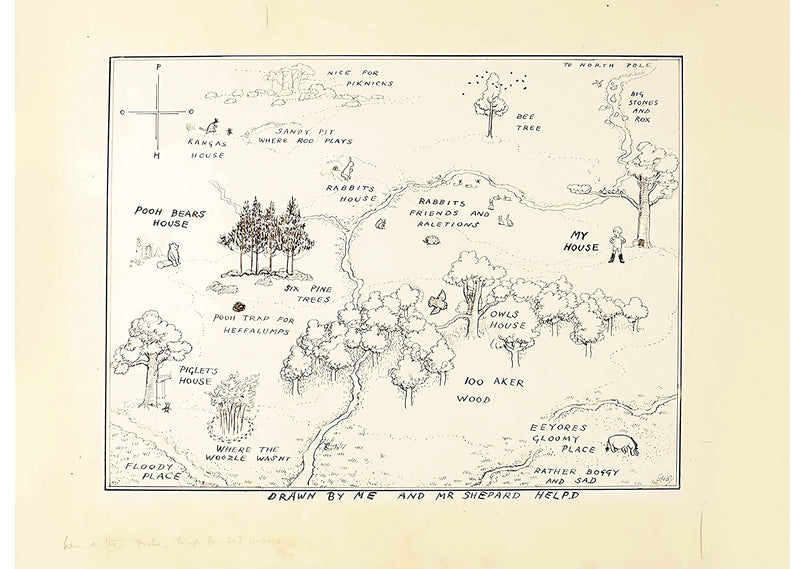 P
O
O
H
NICE FOR
PIKNICKS
TO NORTH POLE
BIG
STONES
AND
ROX
BEE
TREE
KANGAS
HOUSE
SANDY PIT
WHERE ROO PLAYS
RABBITS
HOUSE
RABBITS
FRIENDS AND
RALETIONS
POOH BEARS
HOUSE
MY
HOUSE
SIX PINE
TREES
POOH TRAP FOR
HEFFALUMPS
OWLS
HOUSE
PIGLETS
HOUSE
100 AKER
WOOD
WHERE THE
WOOZLE WASNT
EEYORES
GLOOMY
PLACE
FLOODY
PLACE
RATHER BOGGY
AND SAD
DRAWN BY ME AND MR SHEPARD HELPD